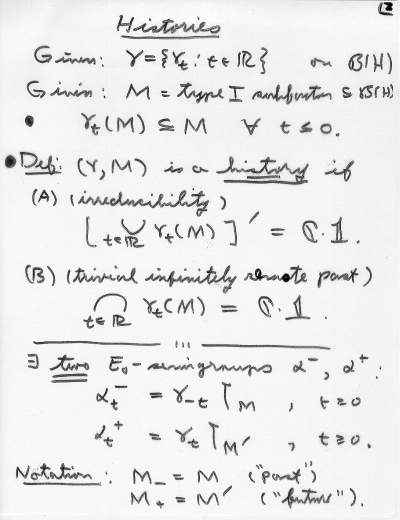 2
Histories
Given: γ = {γ_t : t ∈ ℝ} on B(H)
Given: M = type I subfactor ⊆ B(H)
• γ_t(M) ⊆ M ∀ t ≤ 0.
• Def: (γ, M) is a history if
(A) (irreducibility)
[ ∪_{t∈ℝ} γ_t(M) ]′ = ℂ·𝟙.
(B) (trivial infinitely remote past)
∩_{t∈ℝ} γ_t(M) = ℂ·𝟙.
∃ two E₀-semigroups α⁻, α⁺:
α_t⁻ = γ_{-t} ↾_M , t ≥ 0
α_t⁺ = γ_t ↾_{M′} , t ≥ 0.
Notation: M₋ = M ("past")
M₊ = M′ ("future").